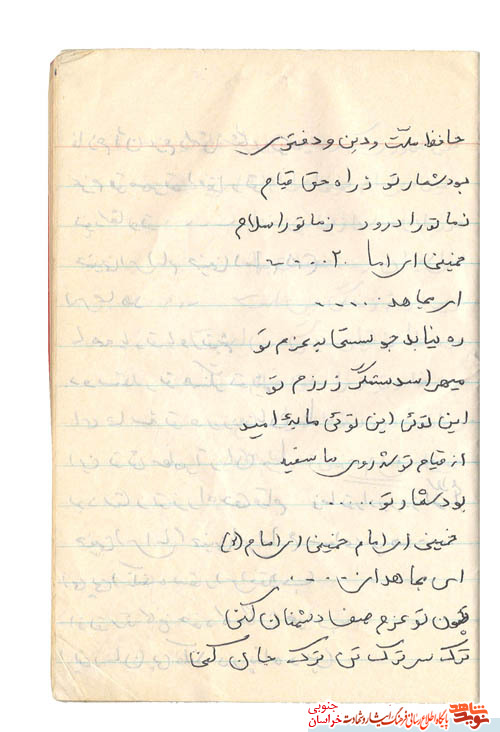 حافظ ملت و دین و دفتری
بود شعار تو ز راه حق قیام
ز ما تو را درود ز ما تو را سلام
خمینی ای اما ۲۰ ....
ای مجاهد ....
ره نیابد چو سستی به عزم تو
میهراسد ستمگر ز رزم تو
این توئی این توئی مایهٔ امید
از قیام تو شد روی ما سفید
بود شعار تو ....
خمینی ای امام خمینی ای امام
ای مجاهد ای ....
چون تو عزم صف دشمنان کنی
ترک سر ترک تن ترک جان کنی
نوید شاهد
پایگاه اطلاع رسانی فرهنگ ایثار و شهادت خراسان جنوبی